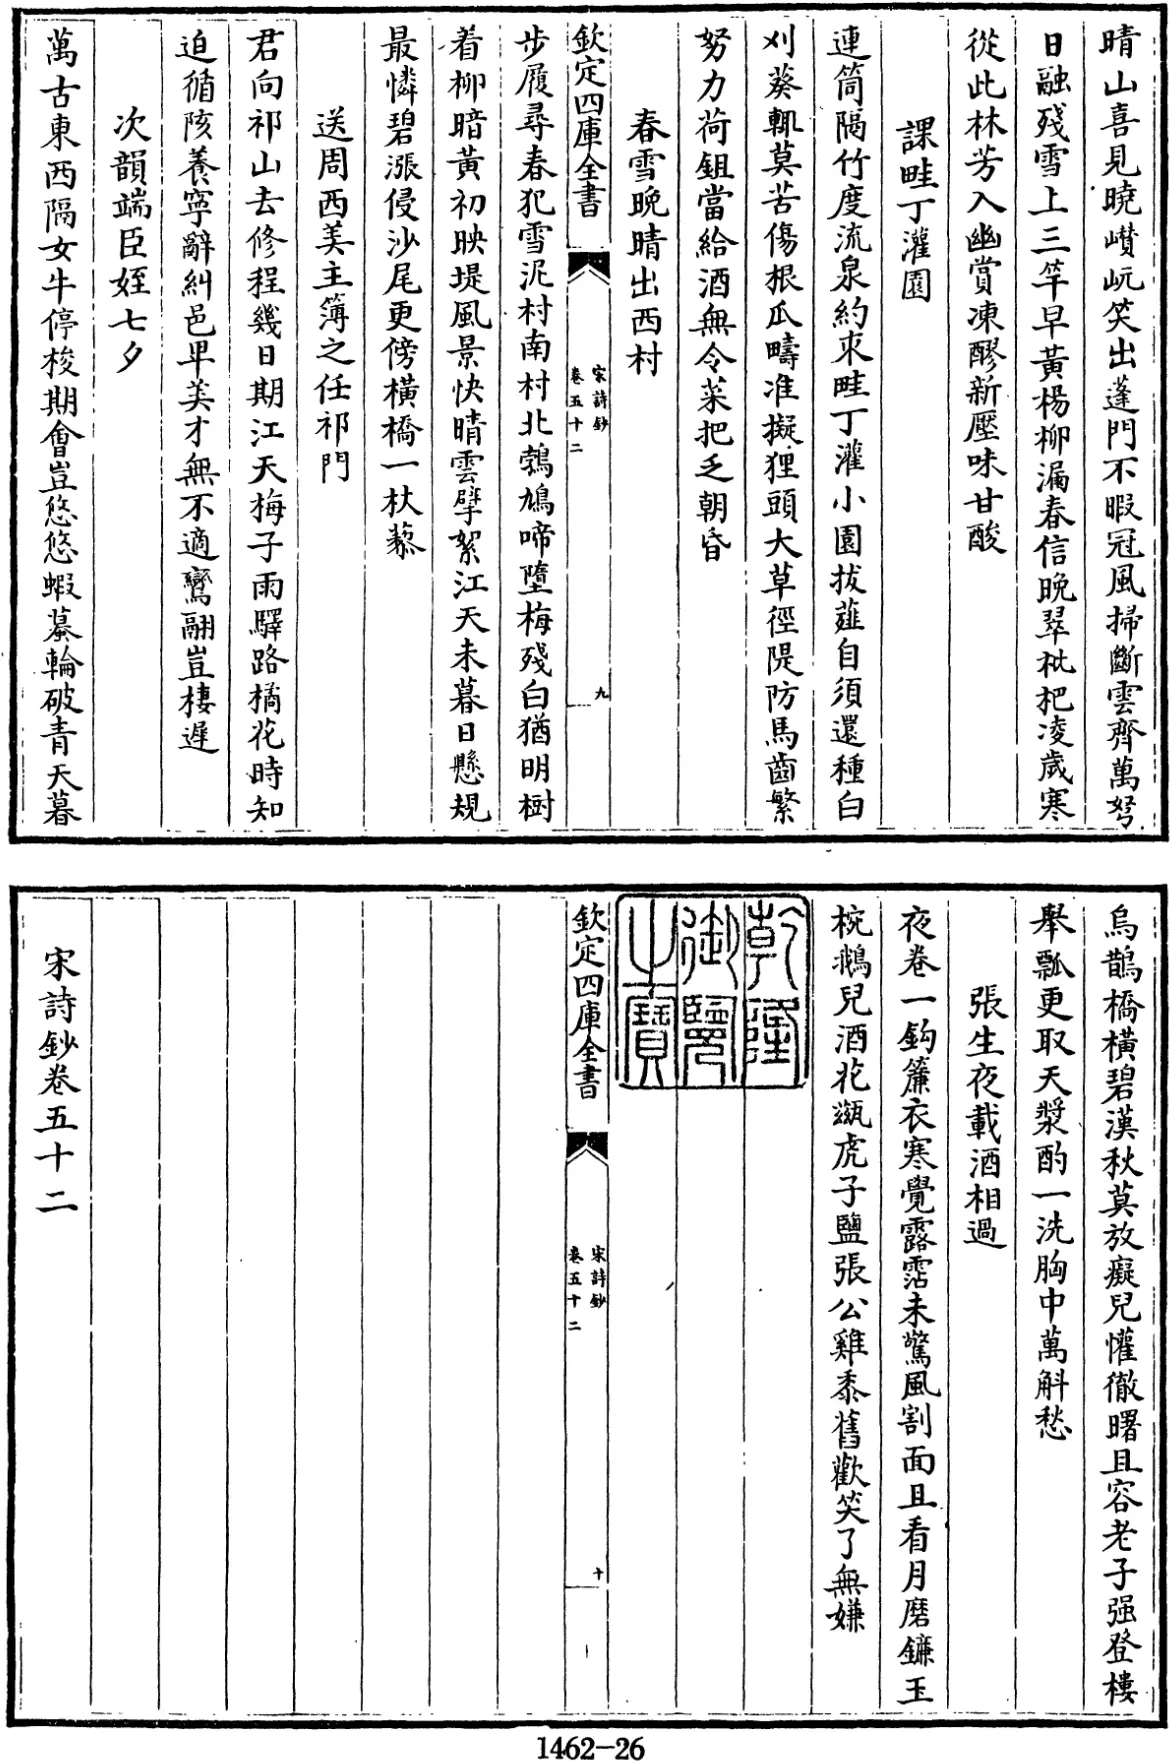 晴山喜見曉巑岏笑出蓬門不暇冠風掃斷雲齊萬弩
日融殘雪上三竿早黃楊柳漏春信晚翠枇杷凌歲寒
從此林芳入幽賞凍醪新壓味甘酸
課畦丁灌園
連筒隔竹度流泉約束畦丁灌小園拔薤自須還種白
刈葵輒莫苦傷根瓜疇准擬貍頭大草徑隄防馬齒繁
努力荷鉏當給酒無令菜把乏朝昏
春雪晚晴出西村
欽定四庫全書
宋詩鈔
卷五十二
九
步屧尋春犯雪泥村南村北鵓鳩啼墮梅殘白猶明樹
着柳暗黃初映堤風景快晴雲擘絮江天未暮日懸規
最憐碧漲侵沙尾更傍橫橋一杖藜
送周西美主簿之任祁門
君向祁山去修程幾日期江天梅子雨驛路橘花時知
迫循陔養寧辭糾邑卑美才無不適鸞翮豈棲遲
次韻端臣姪七夕
萬古東西隔女牛停梭期會豈悠悠蝦蟇輪破青天暮
烏鵲橋橫碧漢秋莫放癡兒懽徹曙且容老子强登樓
舉瓢更取天漿酌一洗胸中萬斛愁
張生夜載酒相過
夜卷一鈎簾衣寒覺露霑未驚風割面且看月磨鐮玉
椀鵝兒酒花瓷虎子鹽張公雞黍舊歡笑了無嫌
乾隆
御覽
之寶
欽定四庫全書
宋詩鈔
卷五十二
十
宋詩鈔卷五十二
1462-26